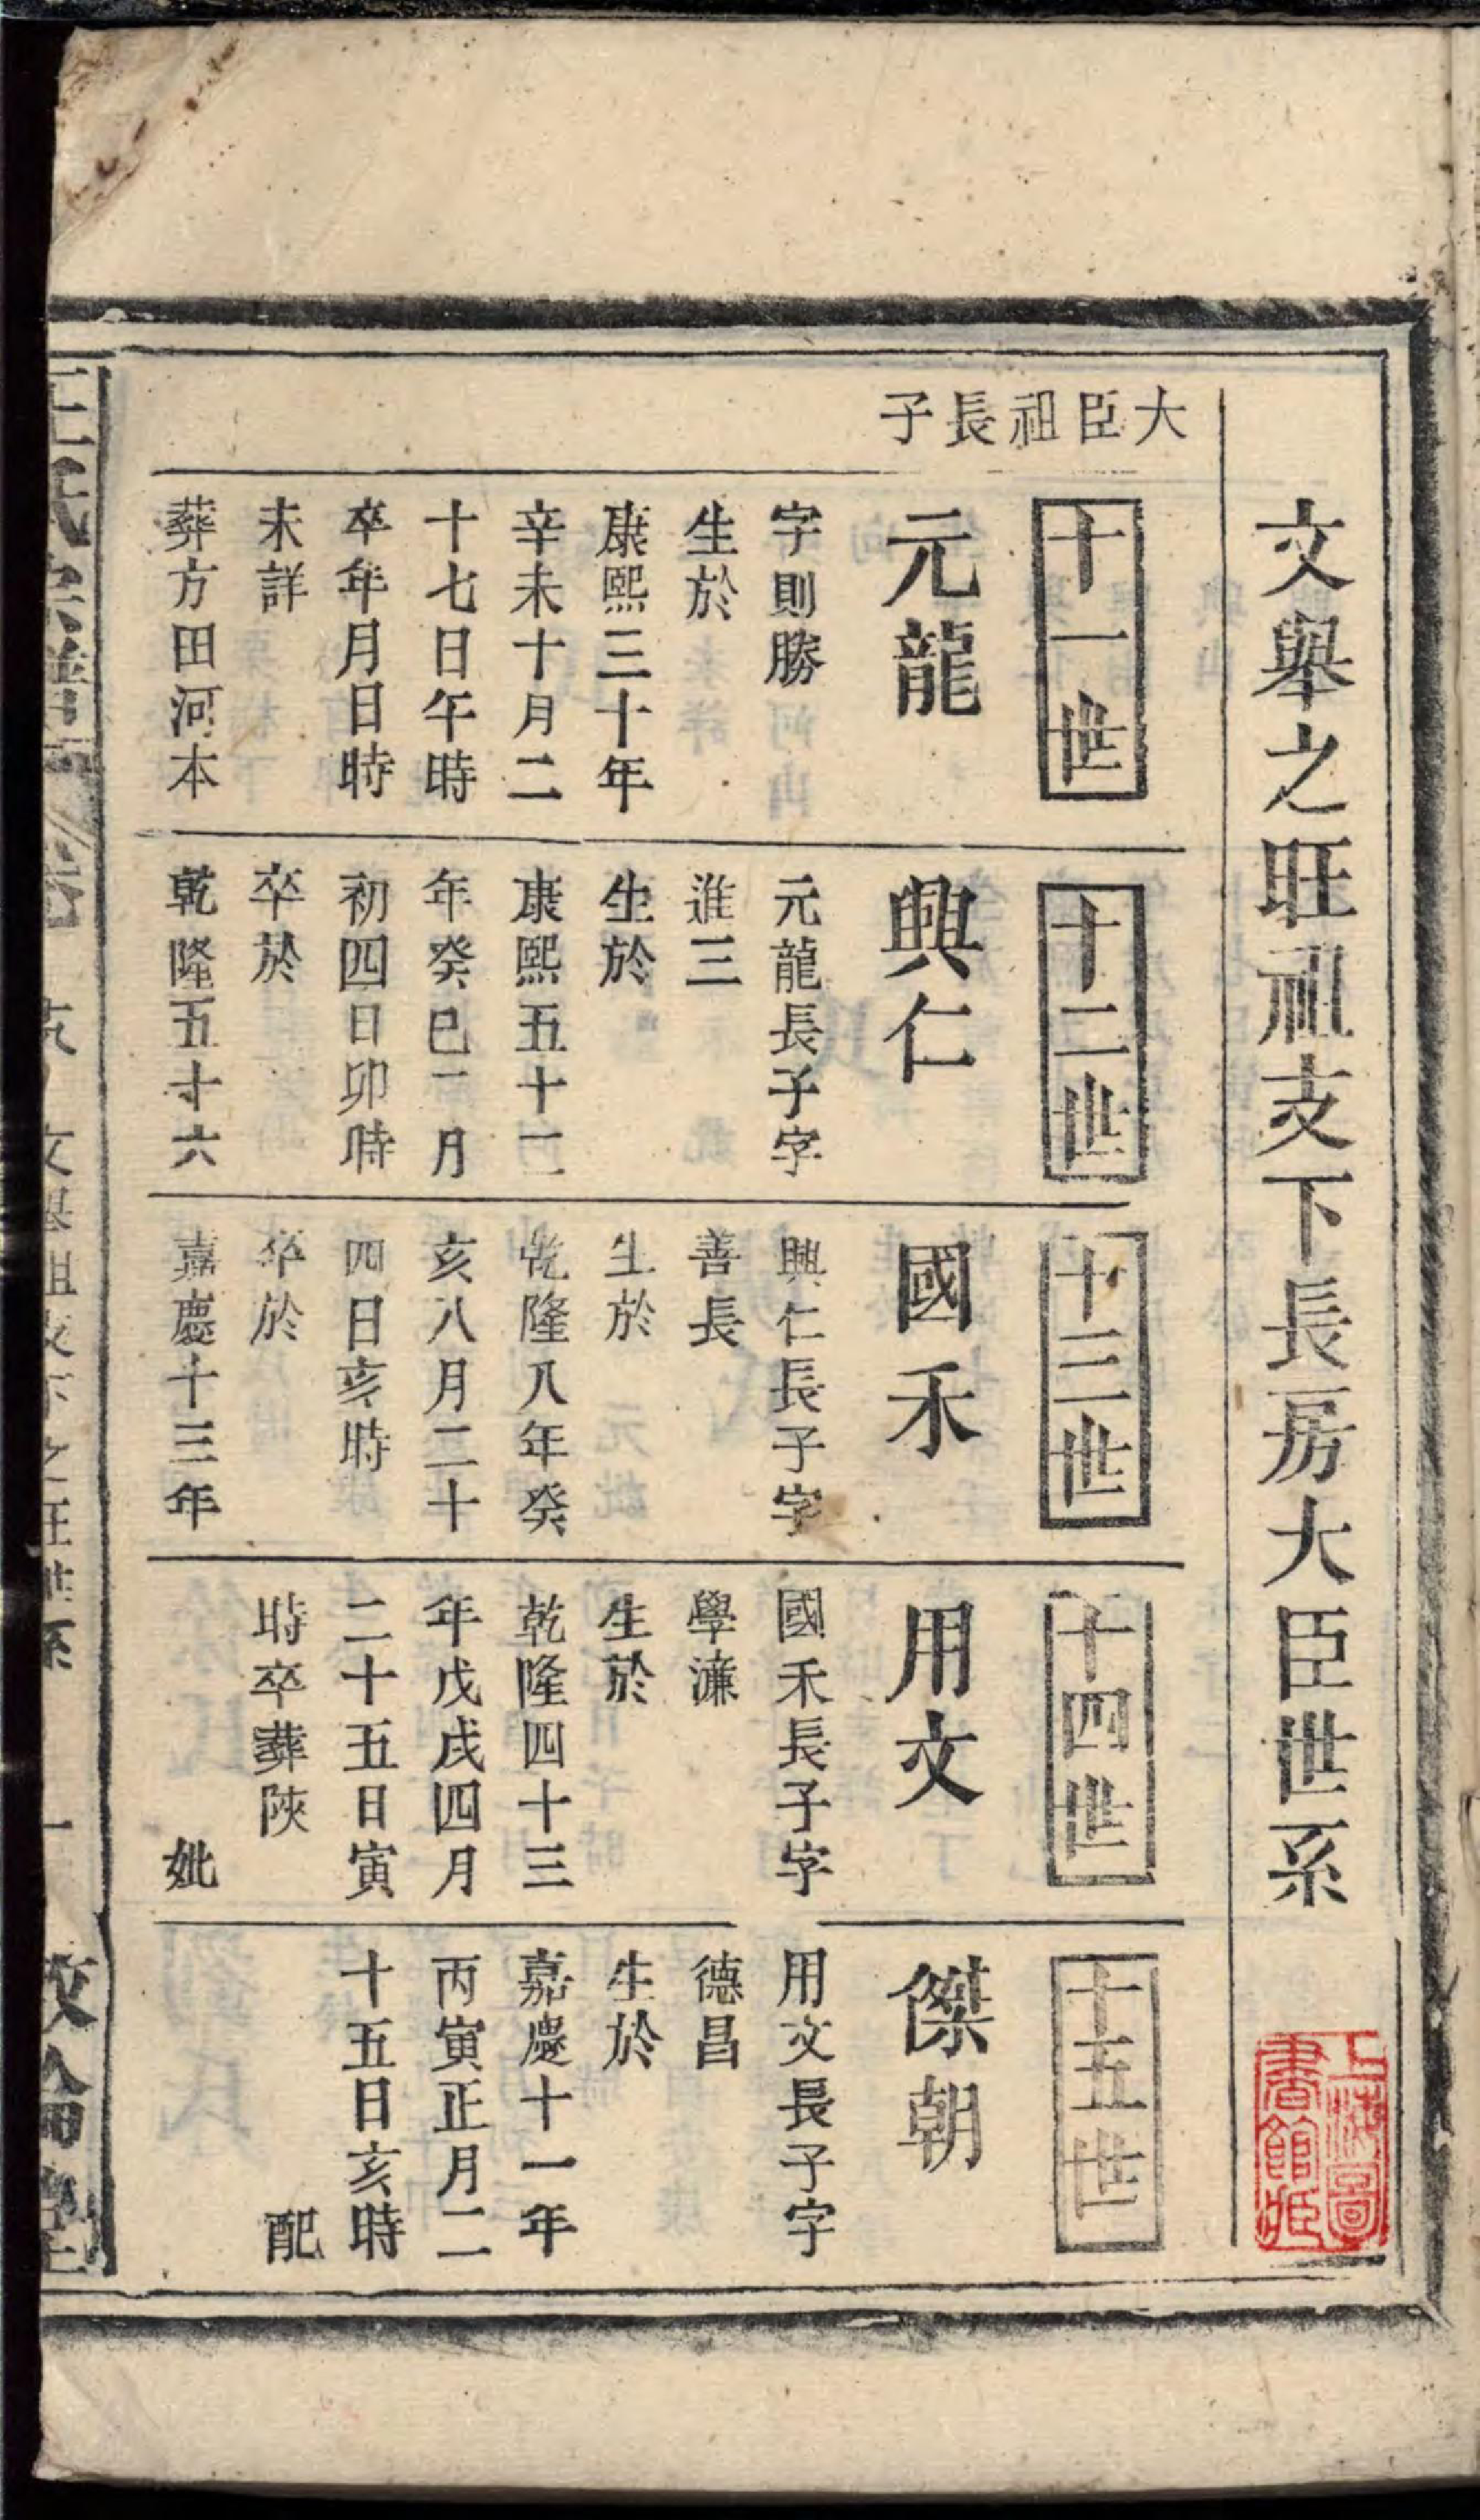 文舉之旺祖支下長房大臣世系
大臣祖長子
十一世
元龍
字則勝
生於
康熙三十年
辛未十月二
十七日午時
卒年月日時
未詳
葬方田河本
十二世
興仁
元龍長子字
進三
生於
康熙五十二
年癸巳二月
初四日卯時
卒於
乾隆五十六
十三世
國禾
興仁長子字
善長
生於
乾隆八年癸
亥八月二十
四日亥時
卒於
嘉慶十三年
十四世
用文
國禾長子字
學濂
生於
乾隆四十三
年戊戌四月
二十五日寅
時卒葬陝
妣
十五世
傑朝
用文長子字
德昌
生於
嘉慶十一年
丙寅正月二
十五日亥時
配
上海圖書館藏